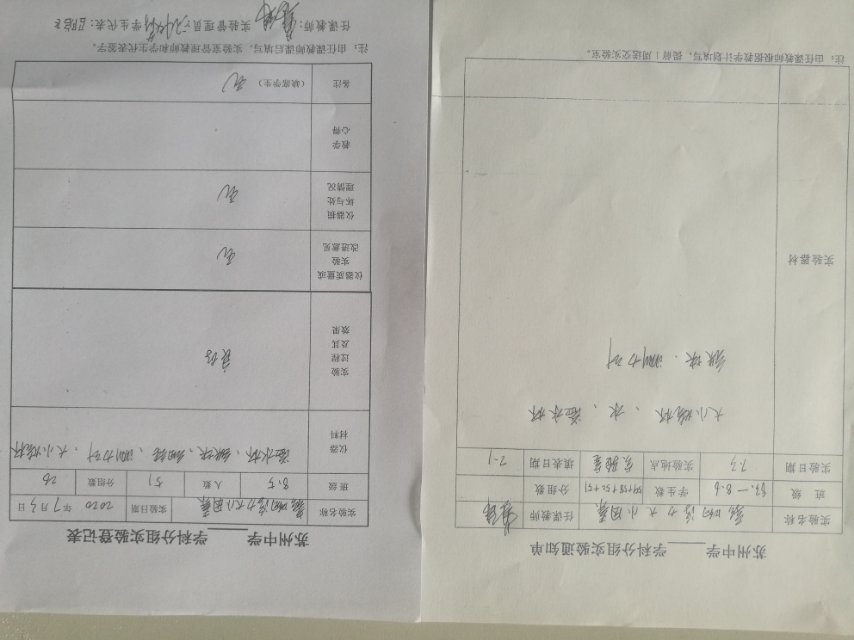 苏州中学 学科分组实验通知单
实验名称 影响浮力大小因素 任课教师
班级 学生数 分组数
实验日期 7.3 实验地点 实验室 课表日期 2-1
实验器材
大小烧杯、水、溢水杯
铁块、测力计
注：由任课教师根据教学计划填写，提前1周送交实验室。
苏州中学 学科分组实验登记表
实验名称 影响浮力大小因素 实验日期 2020年7月3日
班级 8.5 人数 51 分组数 26
仪器材料 溢水杯、铁块、细线、测力计、大小烧杯
实验过程及其效果 良好
仪器质量或实验改进意见 无
仪器损坏与处理情况 无
教学心得
备注 （缺席学生） 无
注：由任课教师课后填写，实验室管理教师和学生代表签字。
任课教师： 实验管理员： 学生代表：